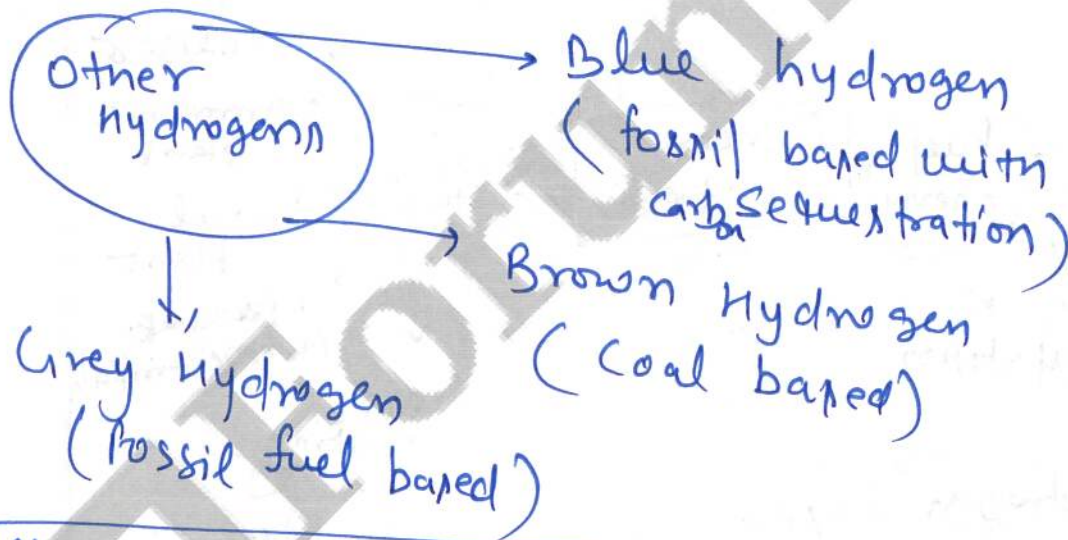 Other
hydrogens
Blue hydrogen
(fossil based with
carbon Sequestration)
Brown Hydrogen
(Coal based)
Grey Hydrogen
(Fossil fuel based)
Forum